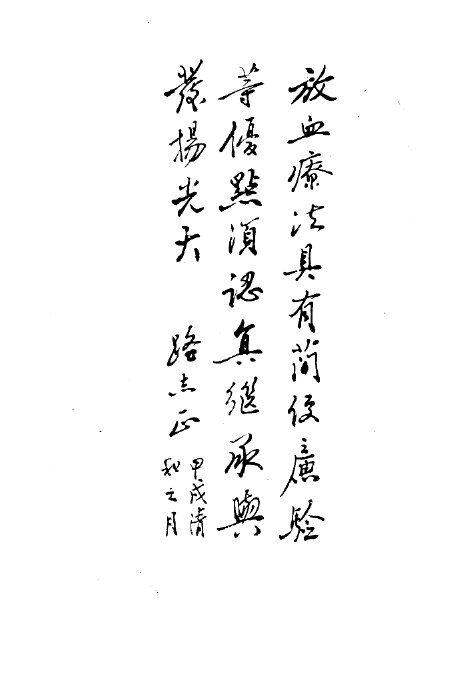 放血療法具有简便廣验
等優點須認真繼承與
發揚光大 路志正
甲戌清
和之月